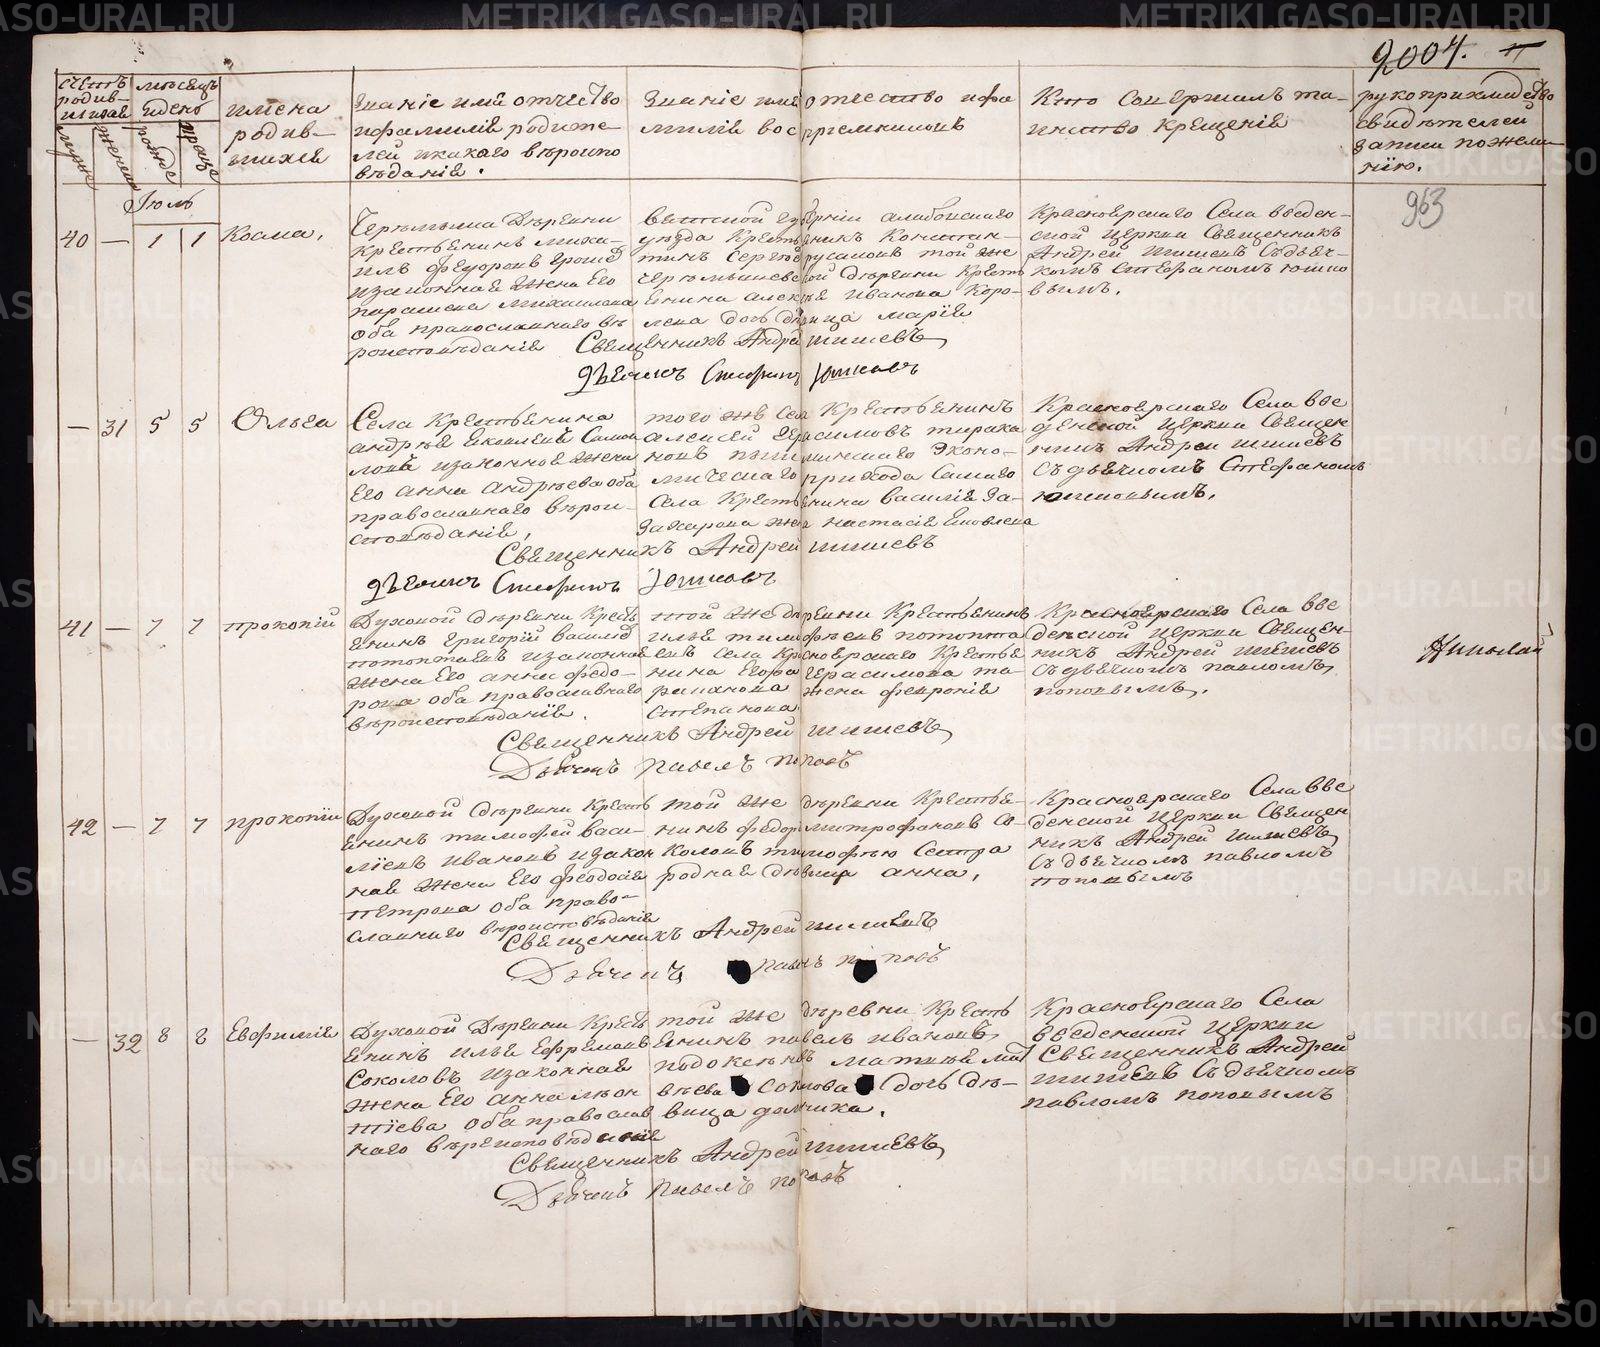 2004.
счетъ родив- шихся
мужеска
женска
мѣсяцъ и день
рожде
креще
имена родив- шихся
Званіе имя отчество
и фамилія родите-
лей и какого вѣроиспо
вѣданія.
Званіе имя отчество и фа
милія вос пріемниковъ
Кто совершалъ та-
инство крещенія
рукоприкладство
свидѣтелей
записи по жела-
нію.
963
Іюль
40 — 1 1 Косма,
деревни
Крестьянинъ Миха-
илъ Федоровъ
и законная жена Его
Параскева Михаилова
оба православнаго вѣ
роисповѣданія
вятской губерніи елабожскаго
уѣзда Крестьянинъ Констан-
тинъ той же
деревни Крестъ
янина Иванова Коро-
лева дочь дѣвица Марія
Красноярскаго Села введен-
ской церкви Священникъ
Андрей Шишевъ Съ дьяч-
комъ Стефаномъ Юшко
вымъ.
Священникъ Андрей Шишевъ
Дьячекъ Стефанъ Юшковъ
— 31 5 5 Ольга
Села Крестьянина
Андрея
и законная жена
Его Анна Андрѣева оба
православнаго вѣрои-
споведанія,
того же села Крестьянинъ
Алексей Герасимовъ
Эконо-
мическаго прихода Самаго
Села Крестьянина Василія За-
Захарова жена Настасія Яковлева
Красноярскаго Села вве
денской церкви Священ
никъ Андрей Шишевъ
Съ дьячкомъ Стефаномъ
Юшковымъ.
Священникъ Андрей Шишевъ
Дьячекъ Стефанъ Юшковъ
41 — 7 7 Прокопій
Духовой деревни Кресть
янинъ Григорій Василье
и законная
жена Его Анна Федо-
рова оба православнаго
вѣроисповѣданія.
той же деревни Крестьянинъ
Илья Тимофѣевъ
села Красноярскаго Крестья
нина Егора Герасимова
жена Феврония
Степанова
Красноярскаго Села вве
денской церкви Священ-
никъ Андрей Шишевъ
Съ дьячкомъ Павломъ
Поповымъ.
Николай
Священникъ Андрей Шишевъ
Дьячекъ Павелъ Поповъ
42 — 7 7 Прокопій
Духовой деревни Кресть
янинъ Тимофей Васи-
лїевъ Ивановъ и закон
ная жена Его Феодосія
Петрова оба право-
славнаго вѣроисповѣданія
той же деревни Крестья-
нинъ Федоръ Митрофановъ Со-
коловъ Тимофею Сестра
родная дѣвица Анна,
Красноярскаго Села Вве
денской церкви Священ
никъ Андрей Шишевъ
Съ дьячкомъ Павломъ
Поповымъ
Священникъ Андрей Шишевъ
Дьячекъ Павелъ Поповъ
— 32 8 8 Евфимія
Духовой Деревни Кресть
янинъ Илья Ефремовъ
Соколовъ и законная
жена Его Анна Леон
тїева оба православ
наго вѣроисповѣданія
той же деревни Кресть
янинъ Павелъ Ивановъ
Матвѣя Мат
вѣева Соколова дочь дѣ-
вица Домника.
Красноярскаго Села
введенской церкви
Священникъ Андрей
Шишевъ Съ дьячкомъ
Павломъ Поповымъ
Священникъ Андрей Шишевъ
Дьячекъ Павелъ Поповъ
METRIKI.GASO-URAL.RU